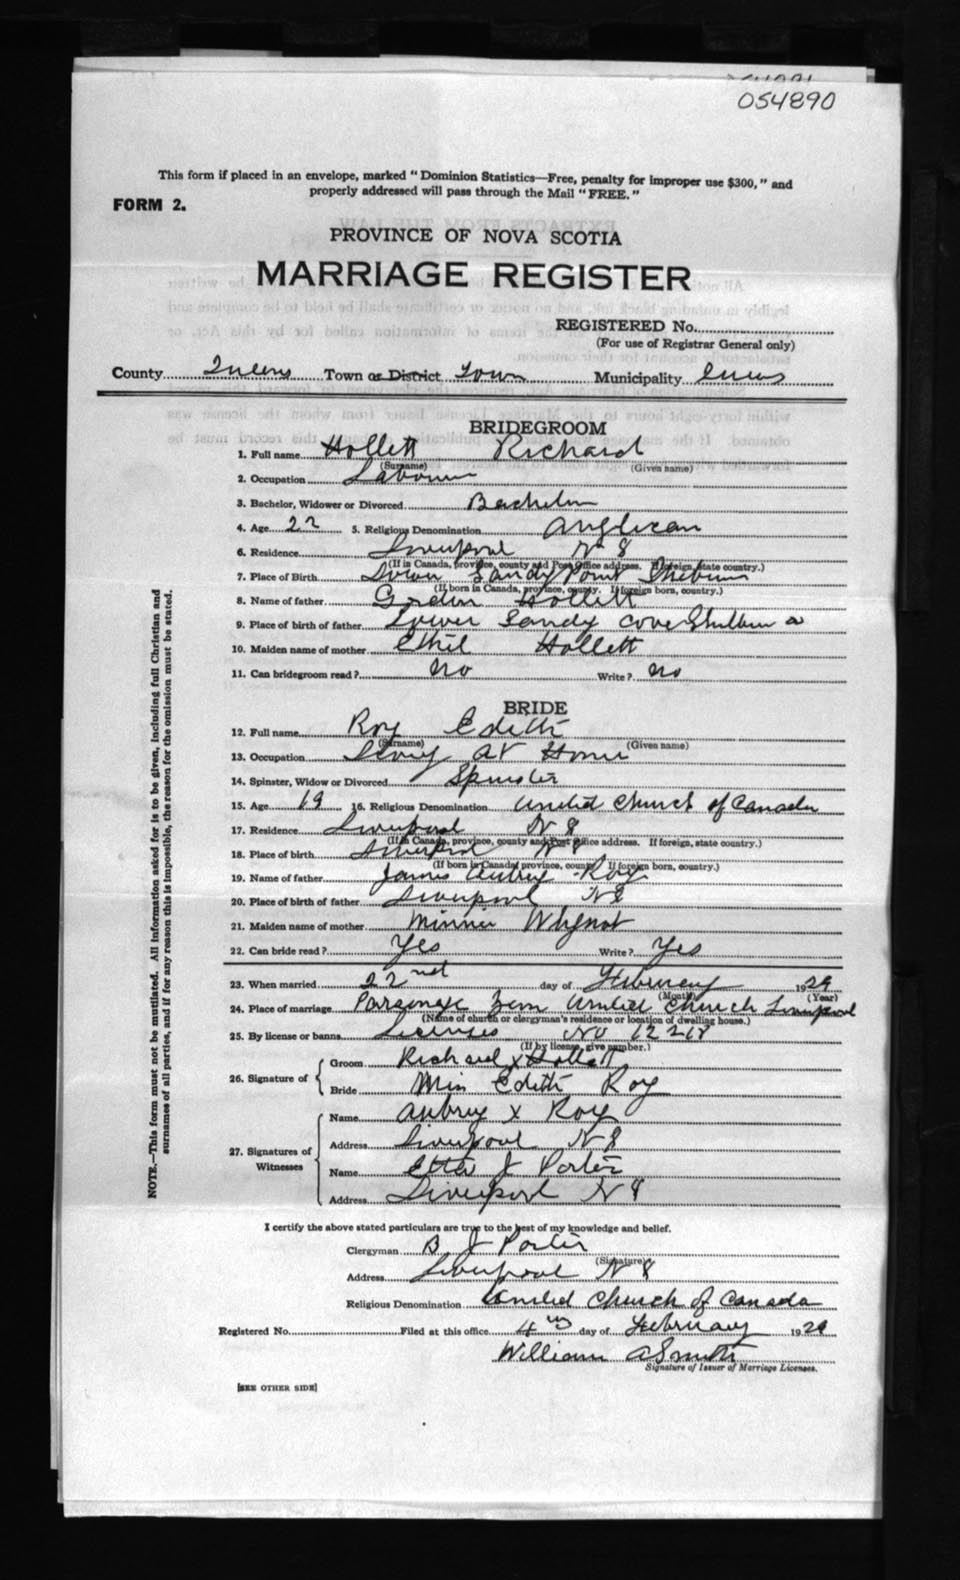 054890
This form if placed in an envelope, marked "Dominion Statistics—Free, penalty for improper use $300," and
properly addressed will pass through the Mail "FREE."
FORM 2.
PROVINCE OF NOVA SCOTIA
MARRIAGE REGISTER
REGISTERED No.
(For use of Registrar General only)
County Queens Town or District Town Municipality
BRIDEGROOM
1. Full name Hollett Richard
(Surname) (Given name)
2. Occupation Labourer
3. Bachelor, Widower or Divorced Bachelor
4. Age 22 5. Religious Denomination Anglican
6. Residence Liverpool N S
(If in Canada, province, county and Post Office address. If foreign, state country.)
7. Place of Birth Lower Sandy Point Shelburne
(If born in Canada, province, county. If foreign born, country.)
8. Name of father Hollett
9. Place of birth of father Lower Sandy Cove
10. Maiden name of mother Ethel Hollett
11. Can bridegroom read? No Write? No
BRIDE
12. Full name Roy Edith
(Surname) (Given name)
13. Occupation at Home
14. Spinster, Widow or Divorced Spinster
15. Age 19 16. Religious Denomination United Church of Canada
17. Residence Liverpool N S
(If in Canada, province, county and Post Office address. If foreign, state country.)
18. Place of birth Liverpool N S
(If born in Canada, province, county. If foreign born, country.)
19. Name of father James Aubrey Roy
20. Place of birth of father Liverpool N S
21. Maiden name of mother Minnie Whynot
22. Can bride read? Yes Write? Yes
23. When married 22nd day of February 1929
(Month) (Year)
24. Place of marriage Parsonage Zion United Church Liverpool
(Name of church or clergyman's residence or location of dwelling house.)
25. By license or banns License No 12218
(If by license, give number.)
26. Signature of Groom Richard x Hollett
Bride Miss Edith Roy
27. Signatures of Witnesses
Name Aubrey x Roy
Address Liverpool N S
Name Etta J Porter
Address Liverpool N S
I certify the above stated particulars are true to the best of my knowledge and belief.
Clergyman B J Porter
(Signature)
Address Liverpool N S
Religious Denomination United Church of Canada
Registered No. Filed at this office day of February 1929
William A Smith
Signature of Issuer of Marriage Licenses.
[SEE OTHER SIDE]
NOTE.—This form must not be mutilated. All information asked for is to be given, including full Christian and
surnames of all parties, and if for any reason this is impossible, the reason for the omission must be stated.